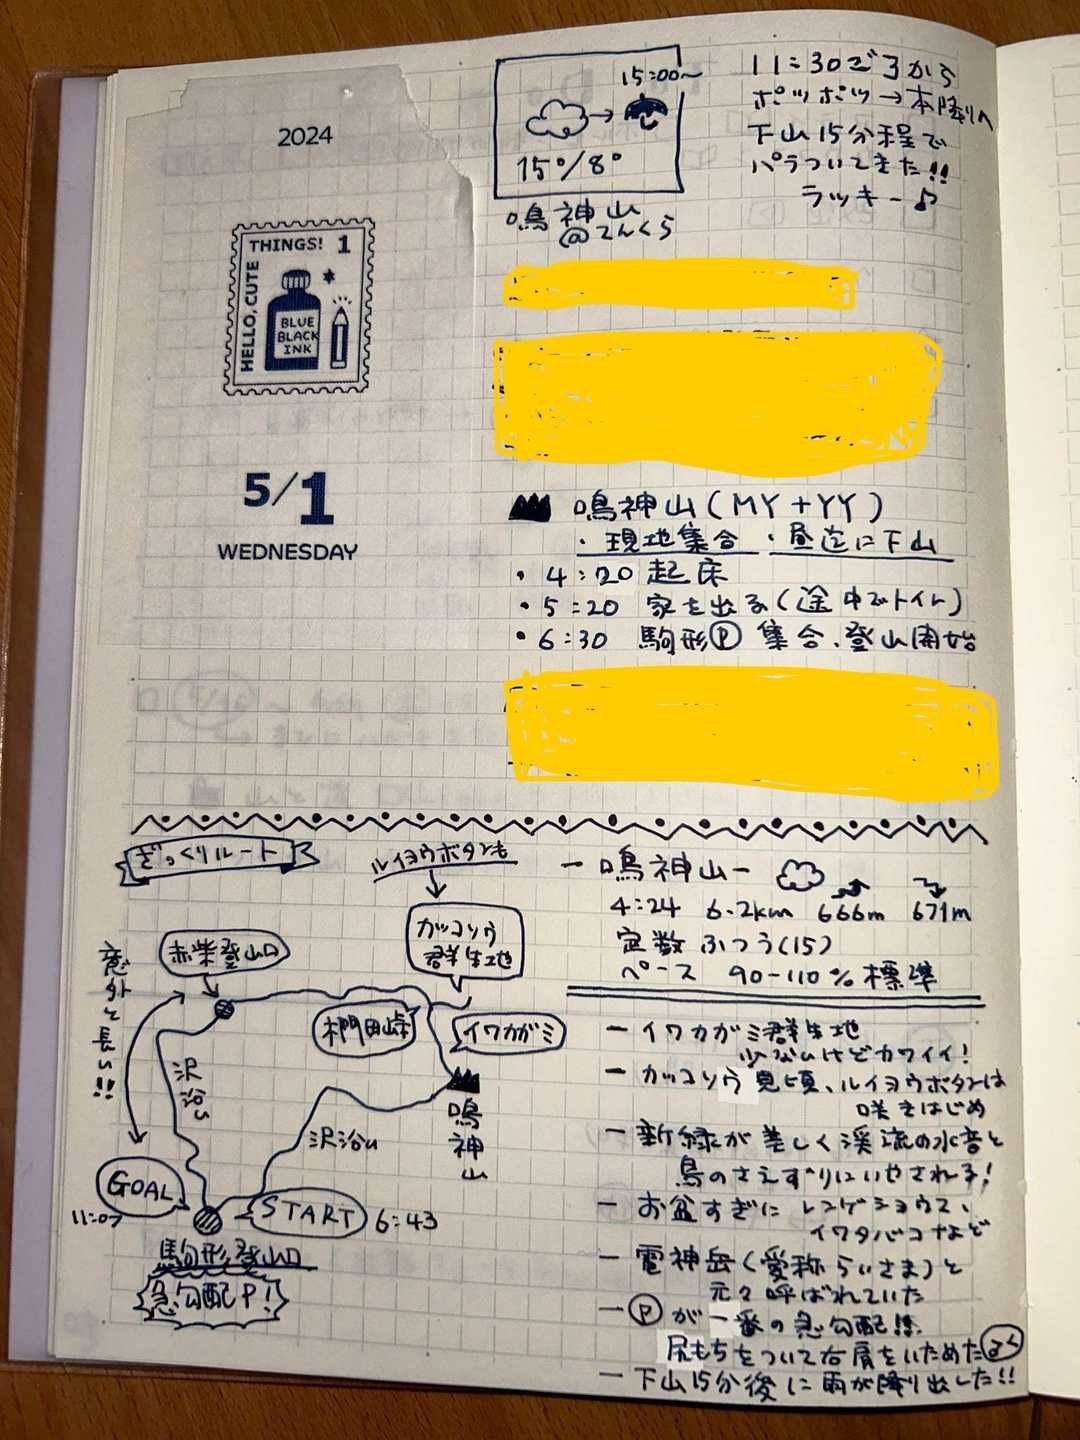 2024
HELLO, CUTE THINGS! 1
BLUE
BLACK
INK
5/1
WEDNESDAY
15:00〜
15°/8°
鳴神山
@てんくら
11:30ごろから
ポツポツ→本降りへ
下山15分程で
パラついてきた!!
ラッキー♪
鳴神山(MY+YY)
・現地集合 ・昼迄に下山
・4:20 起床
・5:20 家を出る(途中でトイレ)
・6:30 駒形Ⓟ 集合、登山開始
ざっくりルート
ルイヨウボタンも
カッコソウ
群生地
赤柴登山口
意外と長い!!
椚田峠
イワカガミ
沢沿い
鳴神山
沢沿い
GOAL
11:07
START
6:43
駒形登山口
急勾配P!
ー鳴神山ー
4:24 6.2km 666m 671m
定数ふつう(15)
ペース 90-110%標準
ーイワカガミ群生地
少ないけどカワイイ!
ーカッコソウ見頃、ルイヨウボタンは
咲きはじめ
ー新緑が美しく渓流の水音と
鳥のさえずりにいやされる!
ーお盆すぎに レンゲショウマ、
イワタバコなど
ー雷神岳(愛称らいさま)と
元々呼ばれていた
ーⓅが一番の急勾配!!
尻もちをついて右肩をいためた
ー下山15分後に雨が降り出した!!